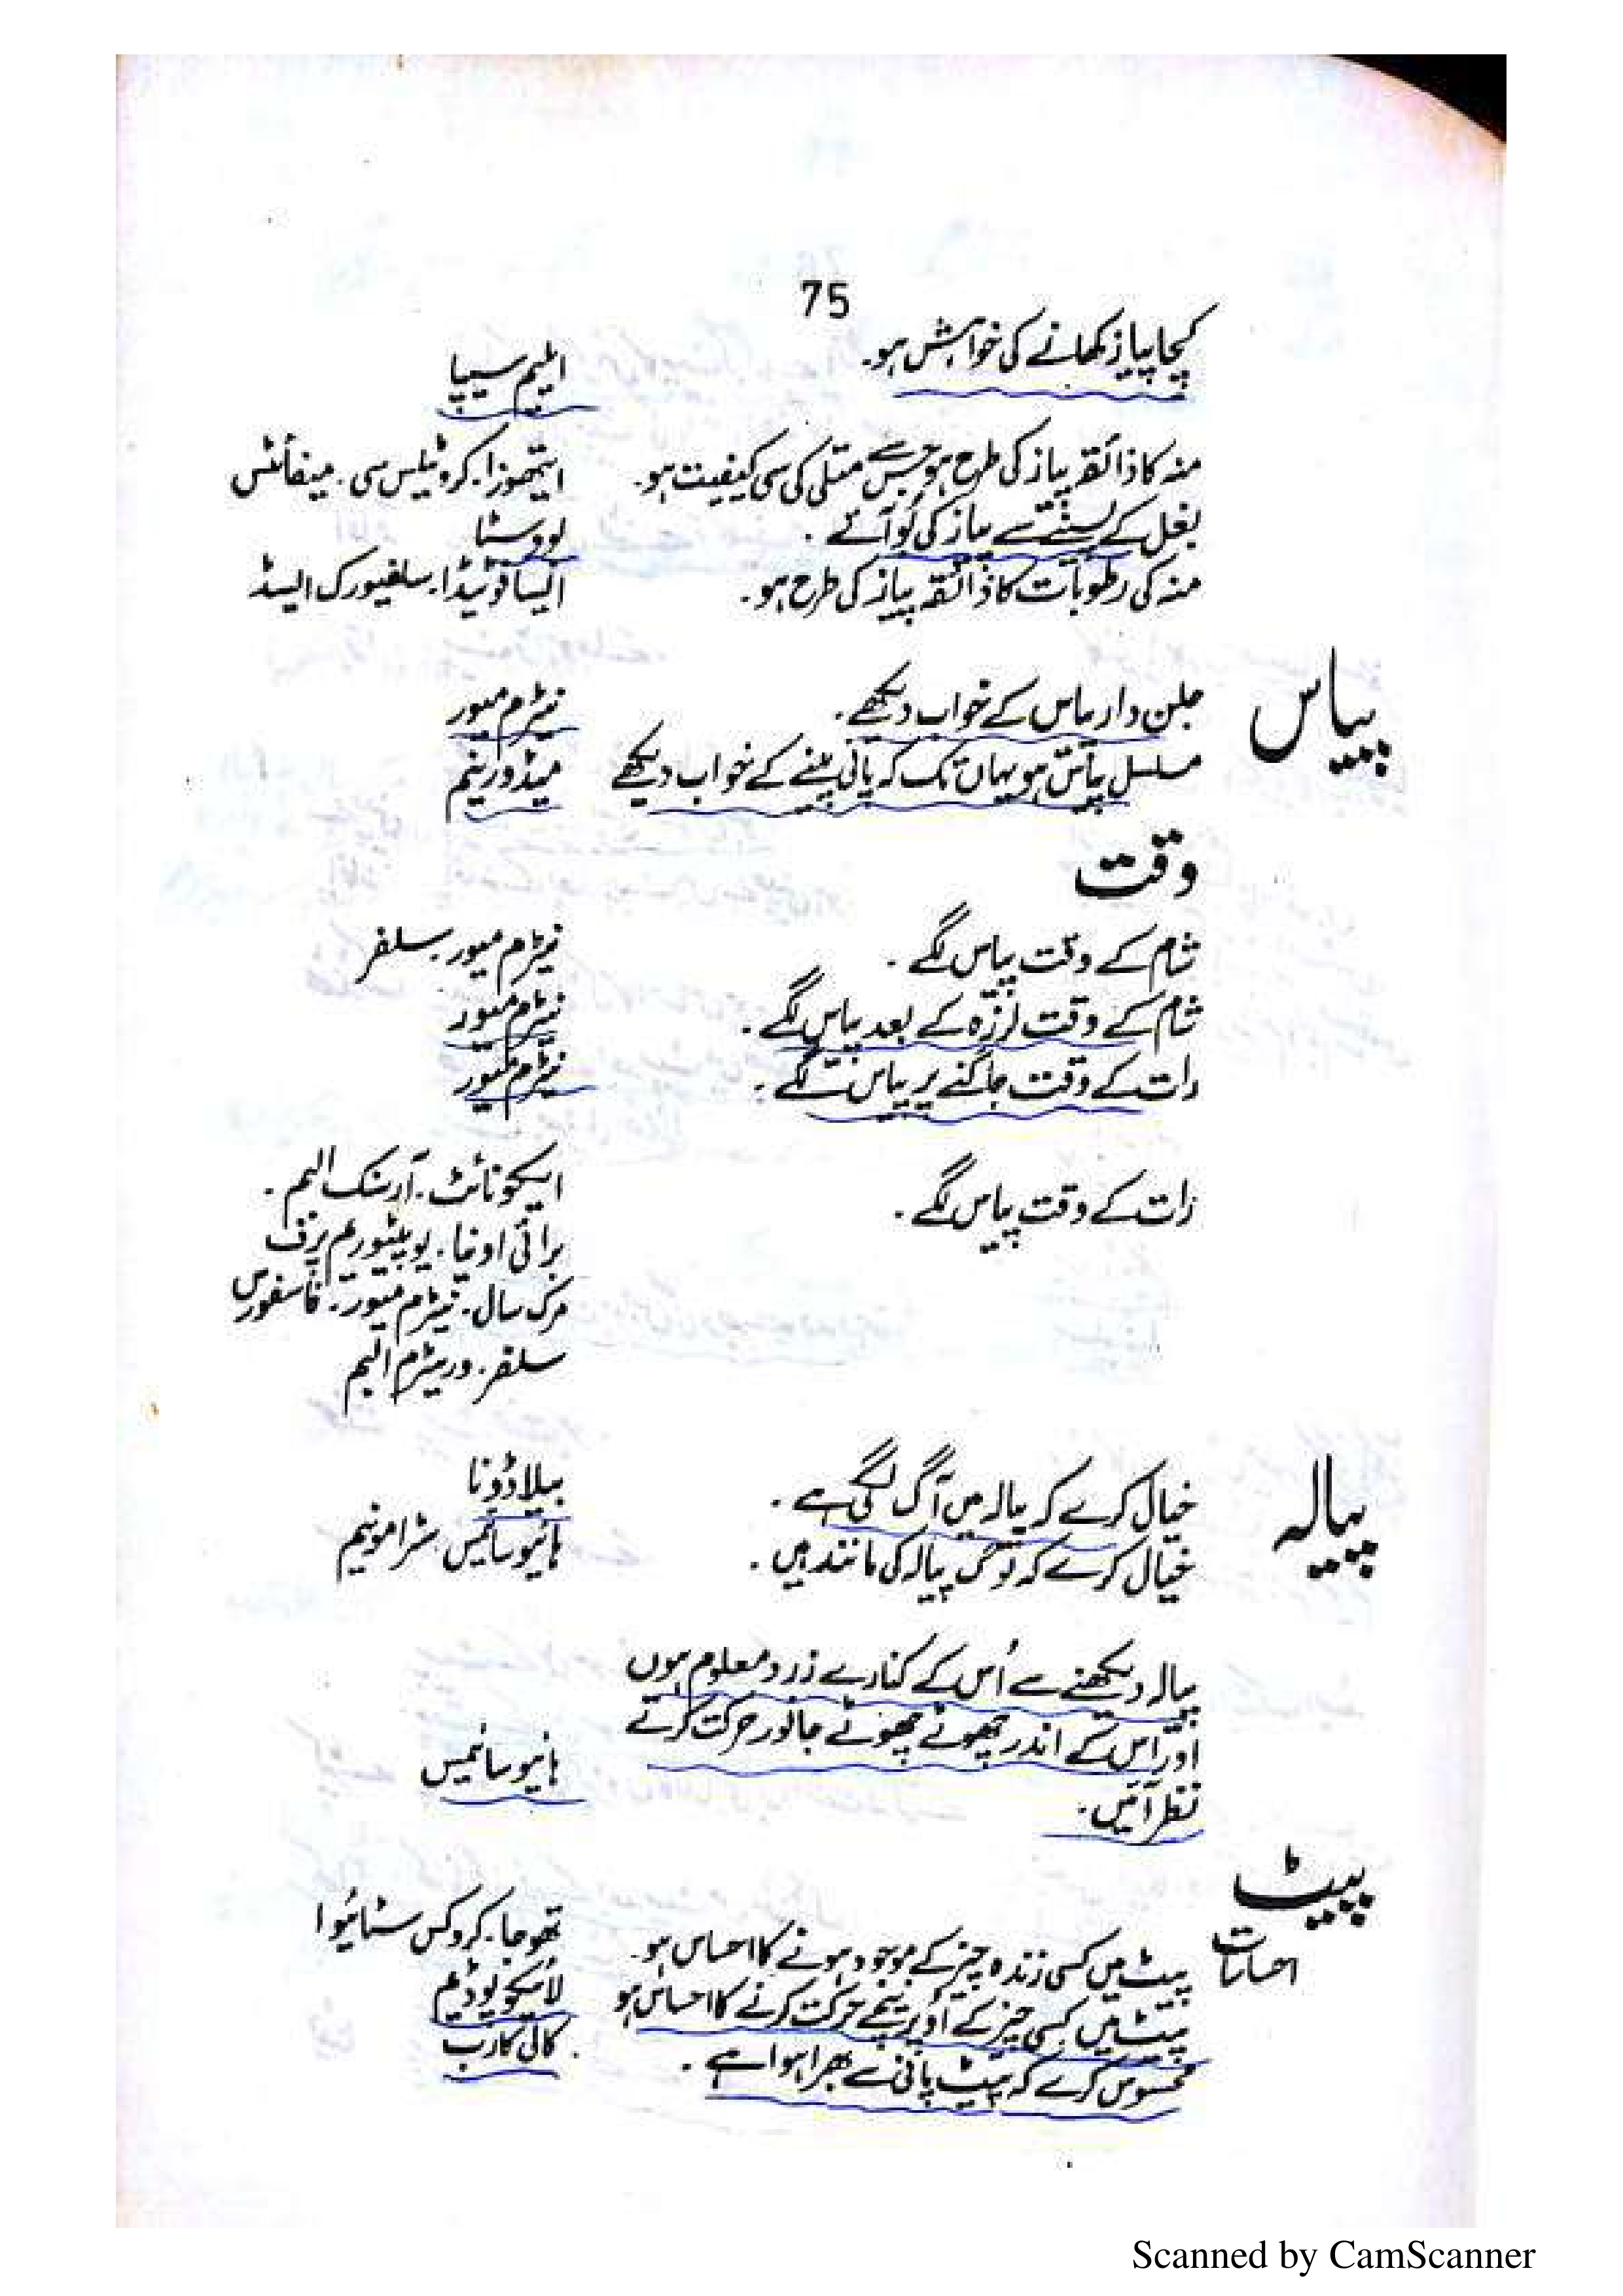 75
کچا پیاز کھانے کی خواہش ہو۔ ایلیم سیپا
منہ کا ذائقہ پیاز کی طرح ہو جس سے متلی کی سی کیفیت ہو۔ ایتھوزا۔ کروٹیلس سی۔ مینفائٹس
بغل کے پسینے سے پیاز کی بُو آئے۔ بووسٹا
منہ کی رطوبات کا ذائقہ پیاز کی طرح ہو۔ ایسافوٹیڈا۔ سلفیورک ایسڈ
پیاس
جلن دار پیاس کے خواب دیکھے۔ نیٹرم میور
مسلسل پیاس ہو یہاں تک کہ پانی پینے کے خواب دیکھے میڈورینم
وقت
شام کے وقت پیاس لگے۔ نیٹرم میور۔ سلفر
شام کے وقت لرزہ کے بعد پیاس لگے۔ نیٹرم میور
رات کے وقت جاگنے پر پیاس لگے۔ نیٹرم میور
رات کے وقت پیاس لگے۔ ایکونائٹ۔ آرسنک البم۔
برائی اونیا۔ یوپیٹوریم پرف
مرک سال۔ نیٹرم میور۔ فاسفورس
سلفر۔ وریٹرم البم
پیالہ
خیال کرے کہ پیالہ میں آگ لگی ہے۔ بیلاڈونا
خیال کرے کہ لوگ پیالہ کی مانند ہیں۔ ہائیوسائمس سٹرامونیم
پیالہ دیکھنے سے اُس کے کنارے زرد معلوم ہوں
اور اس کے اندر چھوٹے چھوٹے جانور حرکت کرتے
نظر آئیں۔ ہائیوسائمس
پیٹ
احساسات
پیٹ میں کسی زندہ چیز کے موجود ہونے کا احساس ہو۔ تھوجا۔ کروکس سٹائیوا
پیٹ میں کسی چیز کے اُوپر نیچے حرکت کرنے کا احساس ہو لائیکوپوڈیم
محسوس کرے کہ پیٹ پانی سے بھرا ہوا ہے۔ کالی کارب
Scanned by CamScanner